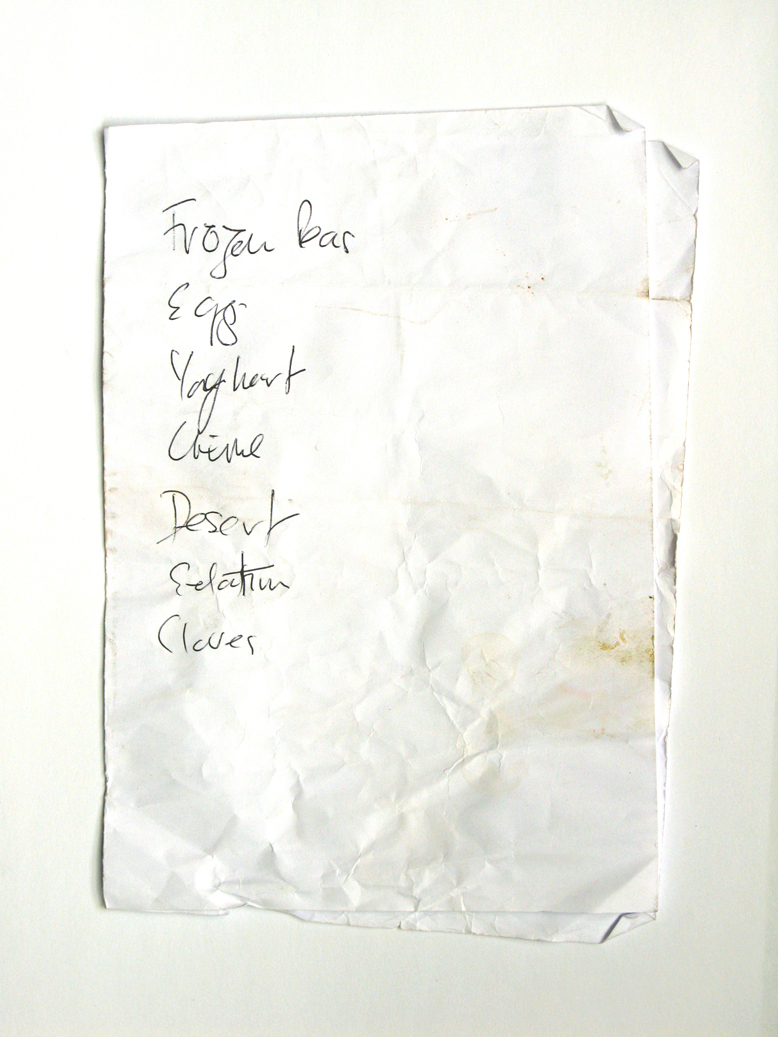 Frozen bar
Egg
Yoghurt
Crème
Desert
Gelatin
Cloves